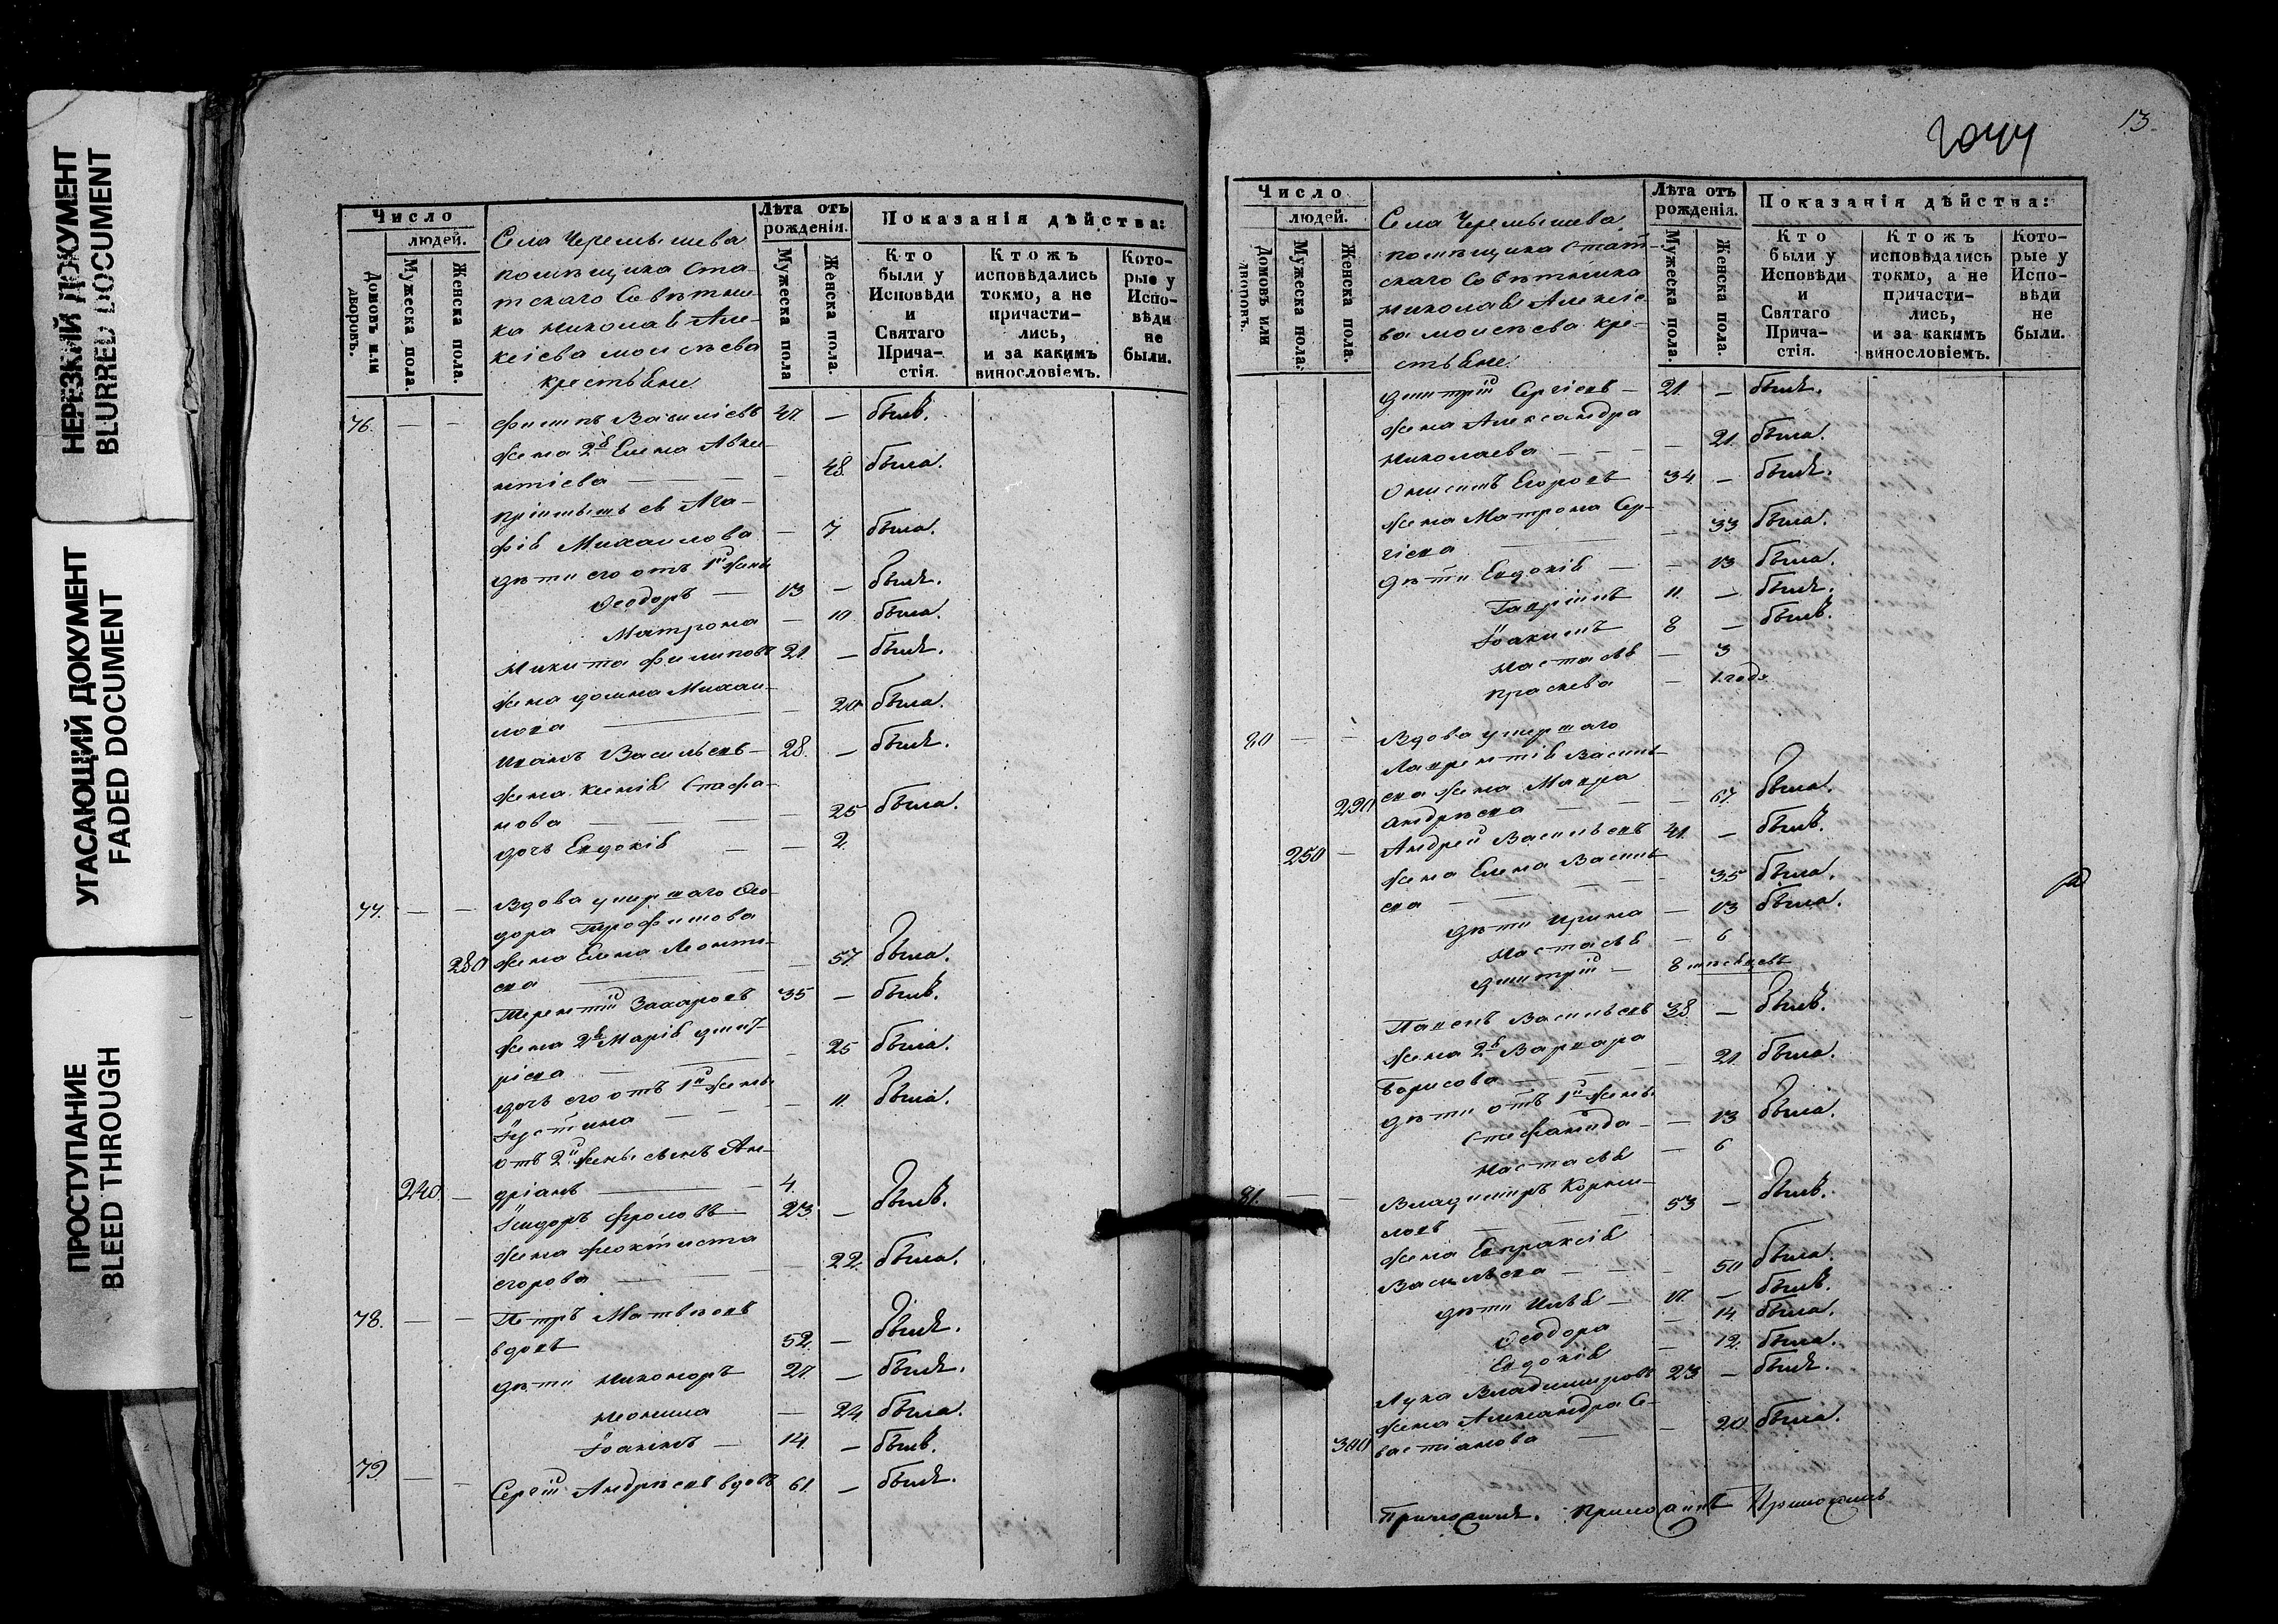 НЕРЕЗКИЙ ДОКУМЕНТ
BLURRED DOCUMENT
УГАСАЮЩИЙ ДОКУМЕНТ
FADED DOCUMENT
ПРОСТУПАНИЕ
BLEED THROUGH
Число
людей.
Домовъ или дворовъ.
Мужеска пола.
Женска пола.
Села Черемышева
помѣщика Ста-
тскаго Совѣтни-
ка Николая Але-
ксіева Моисѣева
крестьяне
Лѣта отъ рожденія.
Мужеска пола
Женска пола.
Показанія дѣйства:
Кто были у Исповѣди и Святаго Прича-стія.
Ктожъ исповѣдались токмо, а не причасти-лись, и за какимъ винословіемъ.
Кото-рые у Испо-вѣди не были.
76. — — Филипъ Василіевъ 47. — былъ.
жена 2я Елена Авкс-
нтіева — — 48. была.
пріимышъ ея Ага-
фія Михаилова — 7 была.
дѣти его отъ 1й жены
Ѳеодоръ — 13 — былъ.
Матрона — 10 была.
Никита Филиповъ 21. — былъ.
жена Домна Михаи-
лова — — 20 была.
Иванъ Васильевъ — 28. — былъ.
жена Ксенія Стефа-
нова — — 25 была.
дочь Евдокія — — 2.
77. — — Вдова умершаго Ѳео-
дора Трофимова
280 жена Елена Леонти-
ева — — 57. была.
Терентій Захаровъ 35 — былъ.
жена 2я Марія Дмит-
ріева — — 25 была.
дочь его отъ 1й жены
Іустина — — 11. была.
отъ 2й жены сынъ Ан-
240. — дріанъ — 4.
Исидоръ Фроловъ 23. — былъ.
жена Феоктиста
Егорова — — 22. была.
78. — — Петръ Матвѣевъ
вдовъ 52. — былъ.
дѣти Никоноръ 27. — былъ.
Неонила — 24. была.
Іоакимъ — 14. — былъ.
79 — — Сергій Андрѣевъ вдовъ 61. — былъ.
2044
13.
Число
людей.
Домовъ или дворовъ.
Мужеска пола.
Женска пола.
Села Черемышева
помѣщика Стат-
скаго Совѣтника
Николая Алексіе-
ва Моисѣева кре-
стьяне.
Лѣта отъ рожденія.
Мужеска пола.
Женска пола.
Показанія дѣйства:
Кто были у Исповѣди и Святаго Прича-стія.
Ктожъ исповѣдались токмо, а не причасти-лись, и за какимъ винословіемъ.
Кото-рые у Испо-вѣди не были.
Дмитрій Сергіевъ — 21. — былъ.
жена Александра
Николаева — — 21. была.
Онисимъ Егоровъ 34 — былъ.
жена Матрона Сер-
гіева — — 33 была.
дѣти Евдокія — — 13 была.
Гавріилъ 11. — былъ.
Іоакимъ 8 — былъ.
Настасья — 3
Праскева — 1. годъ
80 — — Вдова умершаго
Лаврентія Василь-
290 ева жена Мавра
Андрѣева — — 67. была.
250 — Андрей Васильевъ 41. — былъ.
жена Елена Василь-
ева — — 35 была.
дѣти Ирина — 13 была.
Настасья — 6
Дмитрій — 8 мѣсяцевъ
Павелъ Васильевъ 38. — былъ.
жена 2я Варвара
Борисова — — 21. была.
дѣти отъ 1й жены
Стефанида — — 13 была.
Настасья — 6
81. — — Владимиръ Корни-
ловъ — 53 — былъ.
жена Евпраксія
Васильева — — 50 была.
дѣти Илья — 17. — былъ.
Ѳеодора — 14. была.
Евдокія — 12. была.
Лука Владимировъ 23 — былъ.
жена Александра Се-
300 вастіанова — — 20 была.